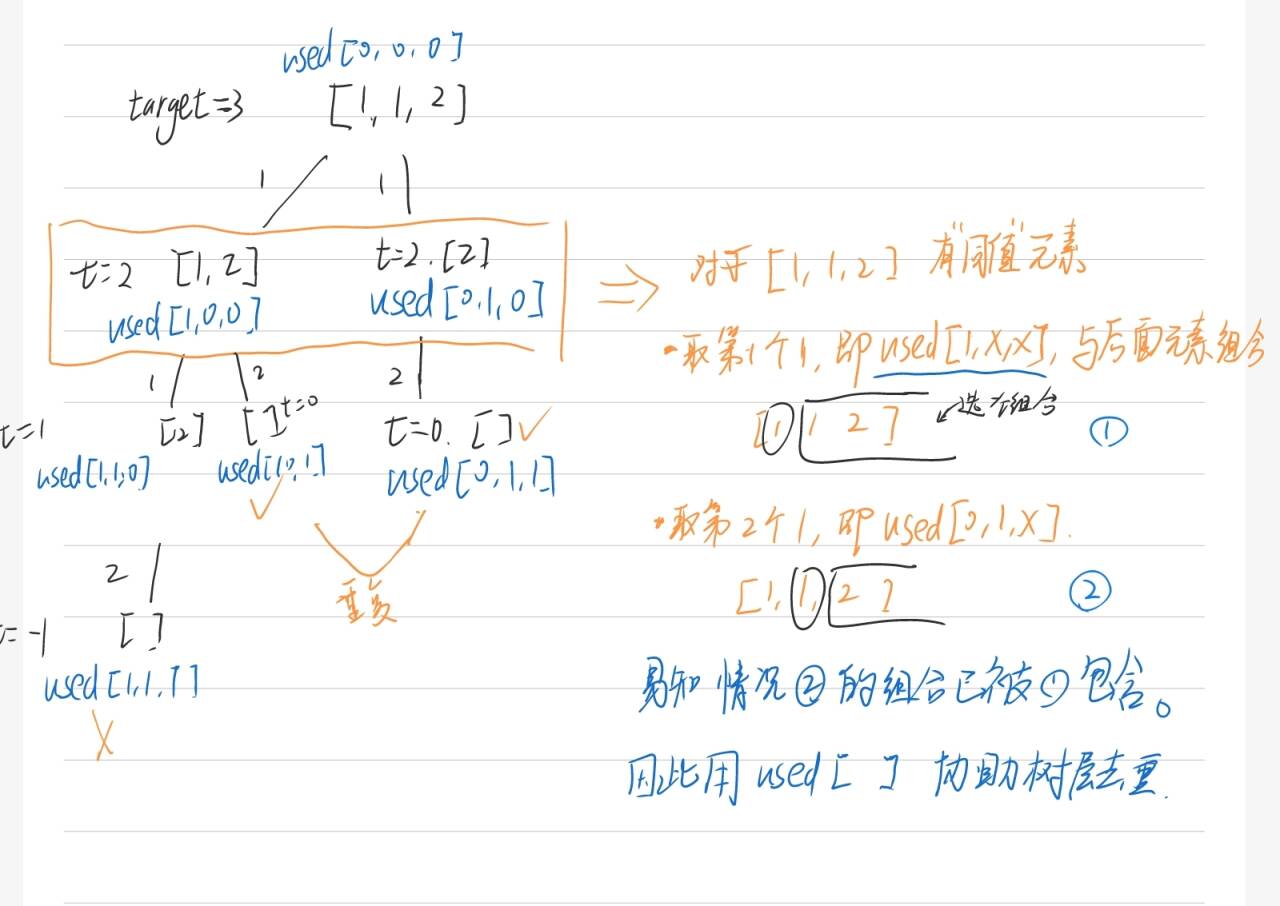 used[0,0,0]
target=3 [1,1,2]
1 1
t=2 [1,2] t=2.[2]
used[1,0,0] used[0,1,0]
1 2 2
t=1 [2] []t=0 t=0. []✓
used[1,1,0] used[1,0,1] used[0,1,1]
✓
重复
2
t=-1 []
used[1,1,1]
X
⇒ 对于[1,1,2] 有"同值"元素
·取第1个1,即used[1,X,X],与后面元素组合
[1 1 2] ↙选择组合 ①
·取第2个1,即used[0,1,X].
[1,1,2] ②
易知情况②的组合已被①包含。
因此用used[ ] 协助树层去重.